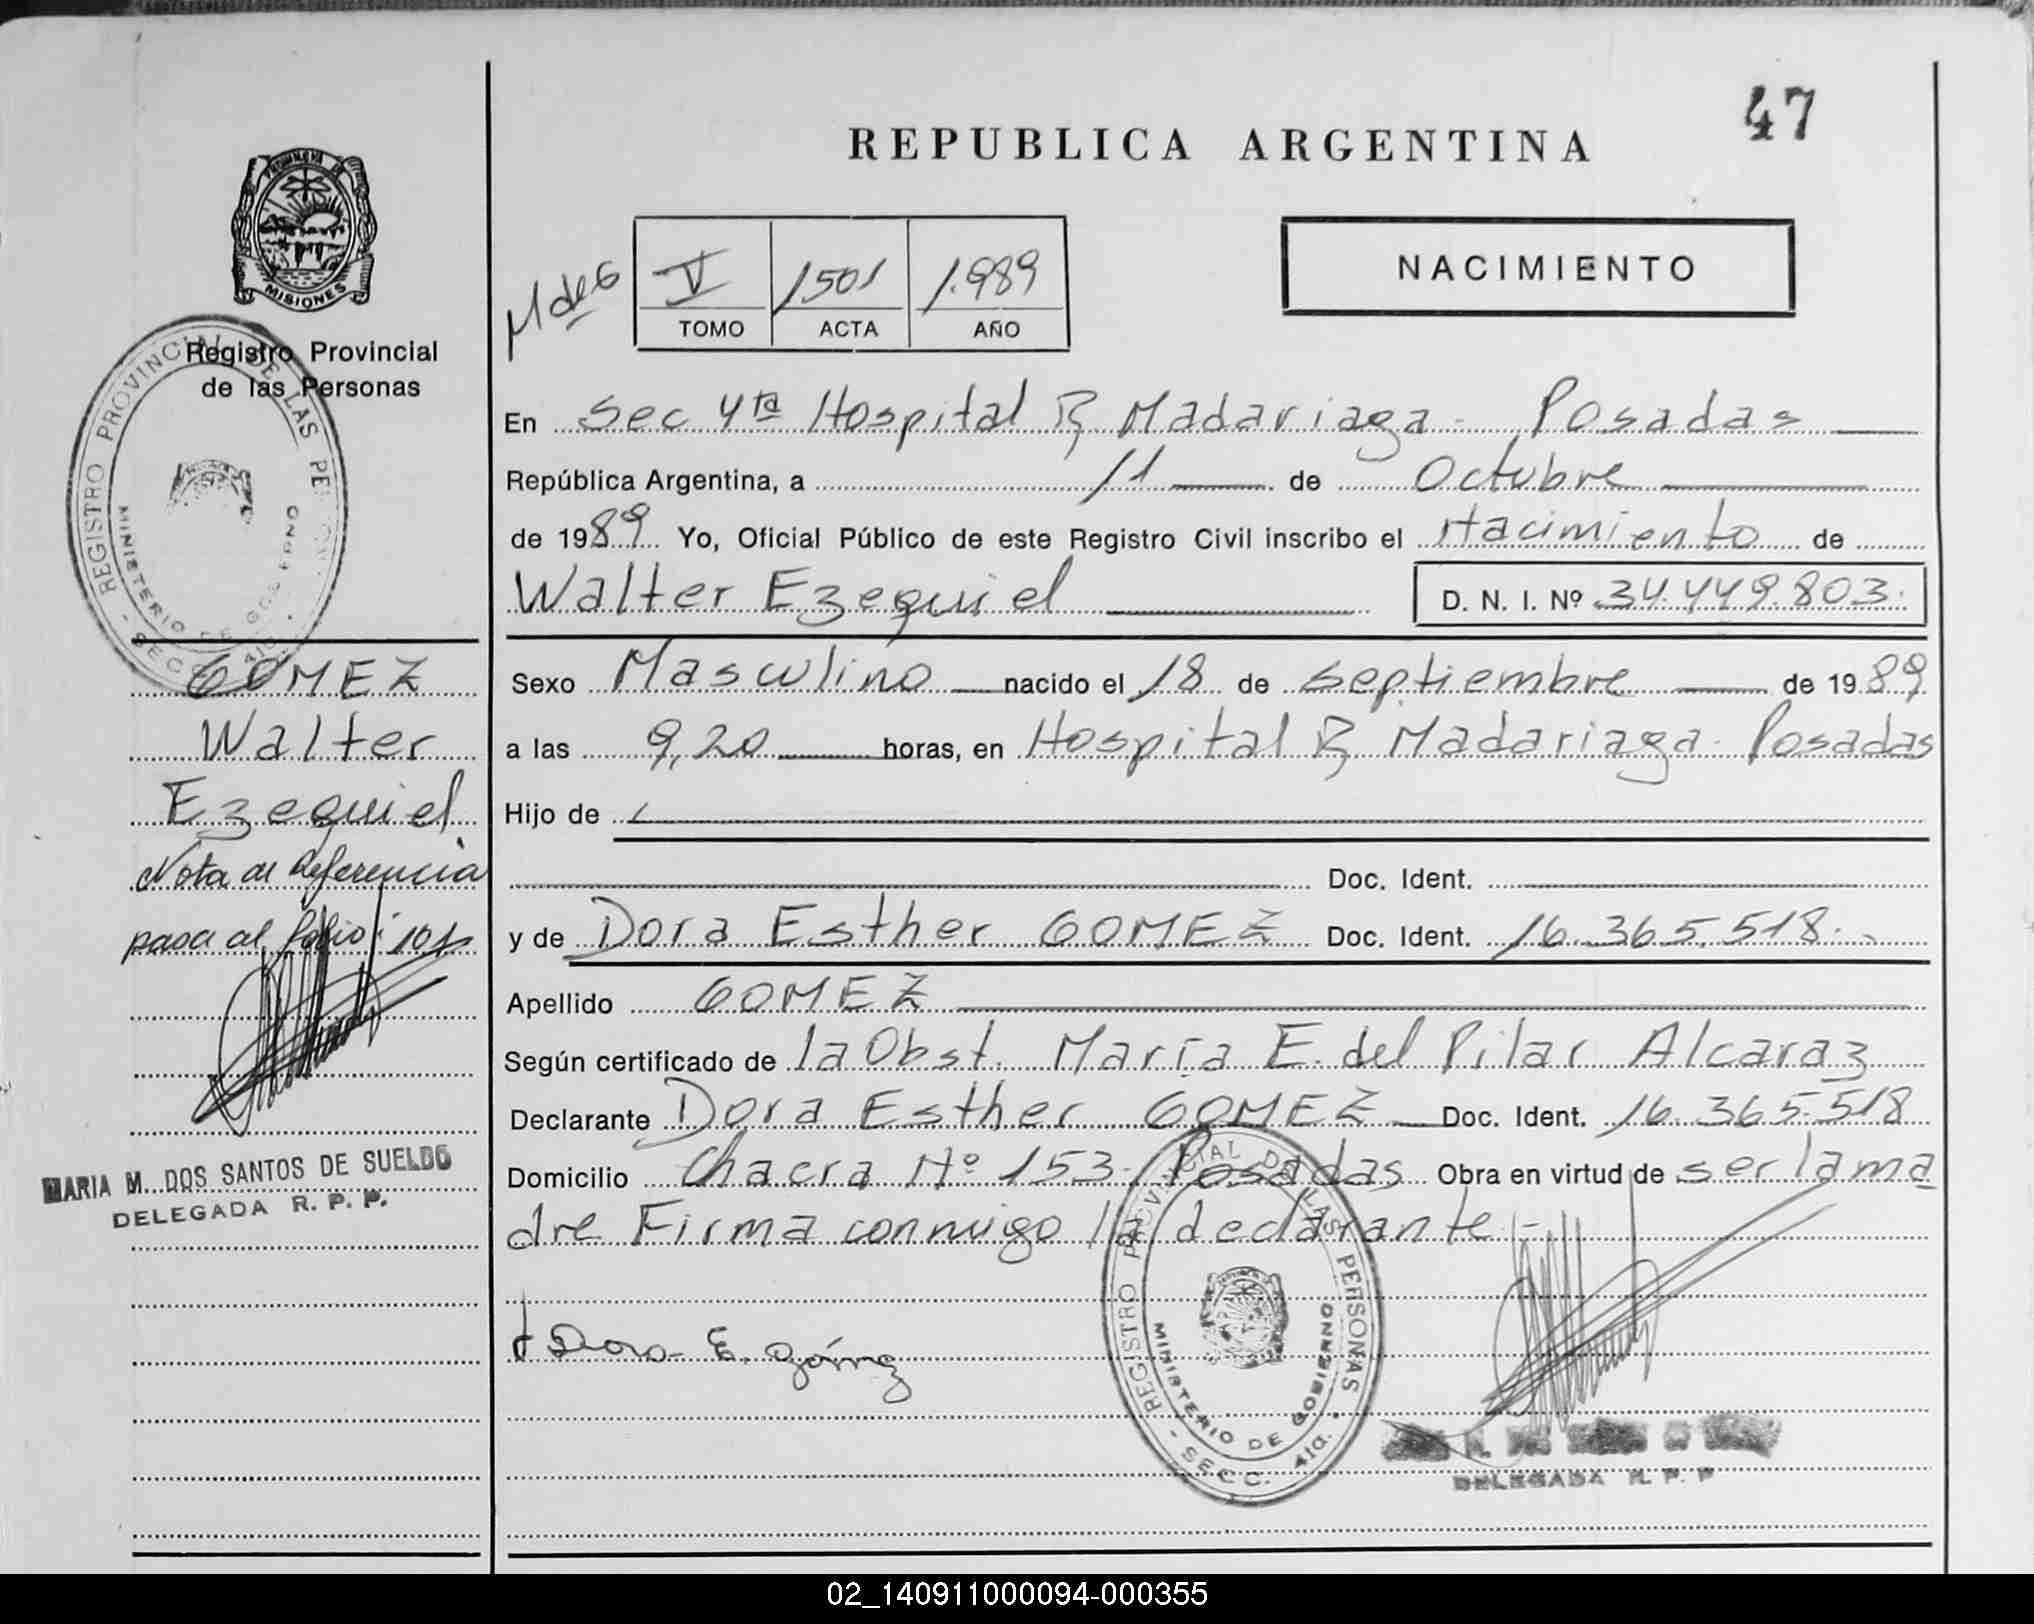 47
REPUBLICA ARGENTINA
PROVINCIA DE
MISIONES
Registro Provincial
de las Personas
M de G
V 1501 1.989
TOMO ACTA AÑO
NACIMIENTO
REGISTRO PROVINCIAL DE LAS PE
MINISTERIO DE GOBIERNO
- SECC. 4ta.
En Sec 4ta Hospital R Madariaga - Posadas
República Argentina, a 11 de Octubre
de 1989 Yo, Oficial Público de este Registro Civil inscribo el Nacimiento de
Walter Ezequiel D. N. I. Nº 34.449.803.
GOMEZ
Walter
Ezequiel.
Nota de Referencia
pasa al folio: 101
MARIA M. DOS SANTOS DE SUELDO
DELEGADA R. P. P.
Sexo Masculino nacido el 18 de septiembre de 1989
a las 9,20 horas, en Hospital R Madariaga - Posadas
Hijo de
Doc. Ident.
y de Dora Esther GOMEZ Doc. Ident. 16.365.518.
Apellido GOMEZ
Según certificado de la Obst. María E. del Pilar Alcaraz
Declarante Dora Esther GOMEZ Doc. Ident. 16.365.518
Domicilio Chacra Nº 153. Posadas Obra en virtud de ser la ma
dre Firma conmigo la declarante -
Dora E. Gómez
REGISTRO PROVINCIAL DE LAS PERSONAS
MINISTERIO DE GOBIERNO
- SECC. 4ta. -
DELEGADA R. P. P
02_140911000094-000355